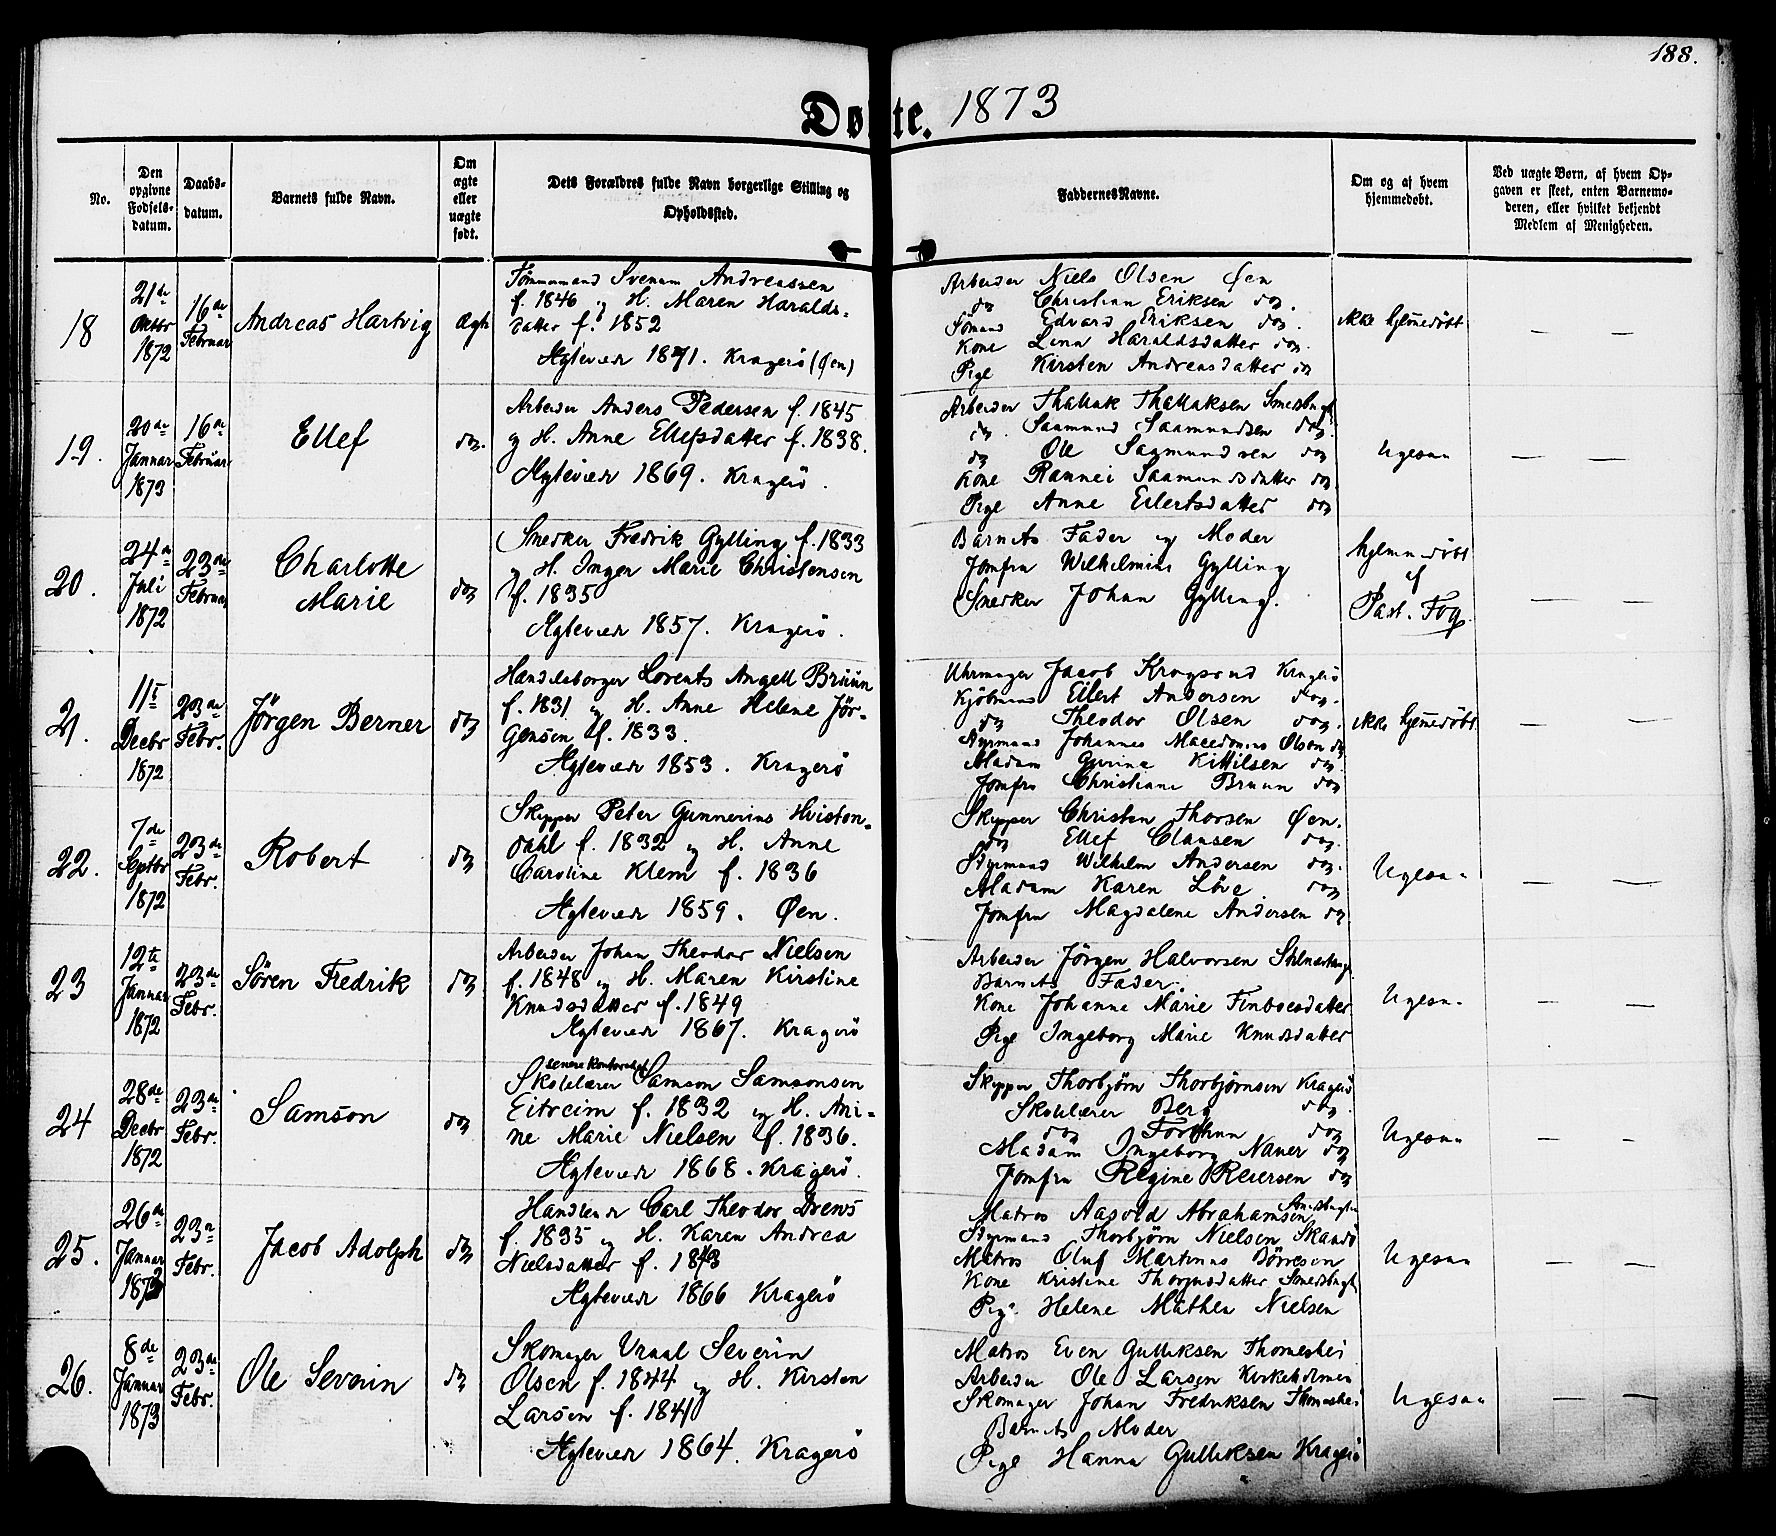 188.
Døbte. 1873
No.
Den opgivne Fødsels-datum.
Daabs-datum.
Barnets fulde Navn.
Om ægte eller uægte født.
Dets Forældres fulde Navn borgerlige Stilling og Opholdssted.
Faddernes Navne.
Om og af hvem hjemmedøbt.
Ved uægte Børn, af hvem Opgaven er skeet, enten Barnemoderen, eller hvilket bekjendt Medlem af Menigheden.
18
21de Oktbr 1872
16de Februar
Andreas Hartvig
Ægte
Tømmermand Svenum Andreassen
f. 1846 og H. Maren Haralds-
datter f. 1852
Ægteviede 1871. Kragerö (Øen)
Arbeider Niels Olsen Øen
do Christian Eriksen do.
Sömand Edvard Eriksen do.
Kone Lena Haraldsdatter do.
Pige Kirsten Andreasdatter do
ikke hjemmedöbt
— —
19.
20de Januar 1873
16de Februar
Ellef
do.
Arbeider Anders Pedersen f. 1845
og H. Anne Ellefsdatter f. 1838.
Ægteviede 1869. Kragerö.
Arbeider Thalluk Thallaksen Smedsbugt
do. Saamund Saamundsen do.
do Ole Saamundsen do
Kone Rannei Saamundsdatter do
Pige Anne Eilertsdatter do
Ligesaa
— —
20.
24de Juli 1872
23de Februar
Charlotte
Marie
do
Snedker Fredrik Gylling f. 1833
og H. Inger Marie Christensen
f. 1835
Ægteviede 1857. Kragerö.
Barnets Fader og Moder
Jomfru Wilhelmine Gylling
Snedker Johan Gylling.
hjemmedöbt
af
Past. Fog
— —
21.
11te Decbr 1872
23de Febr.
Jörgen Berner
do
Handelsborger Lorents Angell Bruun
f. 1831 og H. Anne Helene Jör-
gensen f. 1833.
Ægteviede 1853. Kragerö
Uhrmager Jacob Kragerö
Kjöbmand Eilert Andersen do.
do Theodor Olsen do.
Styrmand Johannes Macedonius Olsen do
Madam Gurine Kittilsen do.
Jomfru Christiane Bruun do
ikke hjemmedöbt
— —
22.
7de Septbr 1872
23de Febr.
Robert
do
Skipper Peter Gunnerius Hvisten-
dahl f. 1832 og H. Anne
Caroline Klem f. 1836
Ægteviede 1859. Øen.
Skipper Christen Thorsen Øen.
do Ellef Clausen do.
Styrmand Wilhelm Andersen do.
Madam Karen Löve do
Jomfru Magdalene Andersen do.
Ligesaa
— —
23
12te Januar 1872
23de Febr.
Sören Fredrik
do
Arbeider Johan Theodor Nielsen
f. 1848 og H. Maren Kirstine
Knudsdatter f. 1849
Ægteviede 1867. Kragerö
Arbeider Jörgen Halvorsen
Barnets Fader.
Kone Johanne Marie Finboesdatter
Pige Ingeborg Marie Knudsdatter
Ligesaa
— —
24
28de Decbr 1872
23de Febr.
Samson
do
senere
Skolelærer Samson Samsonsen
Eitreim f. 1832 og H. Ani-
ne Marie Nielsen f. 1836.
Ægteviede 1868. Kragerö.
Skipper Thorbjörn Thorbjörnsen Kragerö
Skolelærer Berg do.
do Forthun do
Madam Ingeborg Nauer do
Jomfru Regine Reiersen do
Ligesaa
— —
25.
26de Januar 1873
23de Febr.
Jacob Adolph
do
Handlende Carl Theodor Drews
f. 1835 og H. Karen Andrea
Nielsdatter f. 1843
Ægteviede 1866 Kragerö
Matros Aasold Abrahamsen Smedsbugten
Styrmand Thorbjörn Nielsen Skandö
Matros Oluf Martinus Börresen
Kone Kristine Smedsbugt
Pige Helene Mathea Nielsen
Ligesaa
— —
26.
8de Januar 1873
23de Febr.
Ole Severin
do
Skomager Uraal Severin
Olsen f. 1844 og H. Kirsten
Larsen f. 1841
Ægteviede 1864. Kragerö
Matros Even Gulliksen Thomeshei
Arbeider Ole Larsen Kirkeholmen
Skomager Johan Fredriksen Thomeshei
Barnets Moder
Pige Hanna Gulliksen Kragerö
Ligesaa
— —